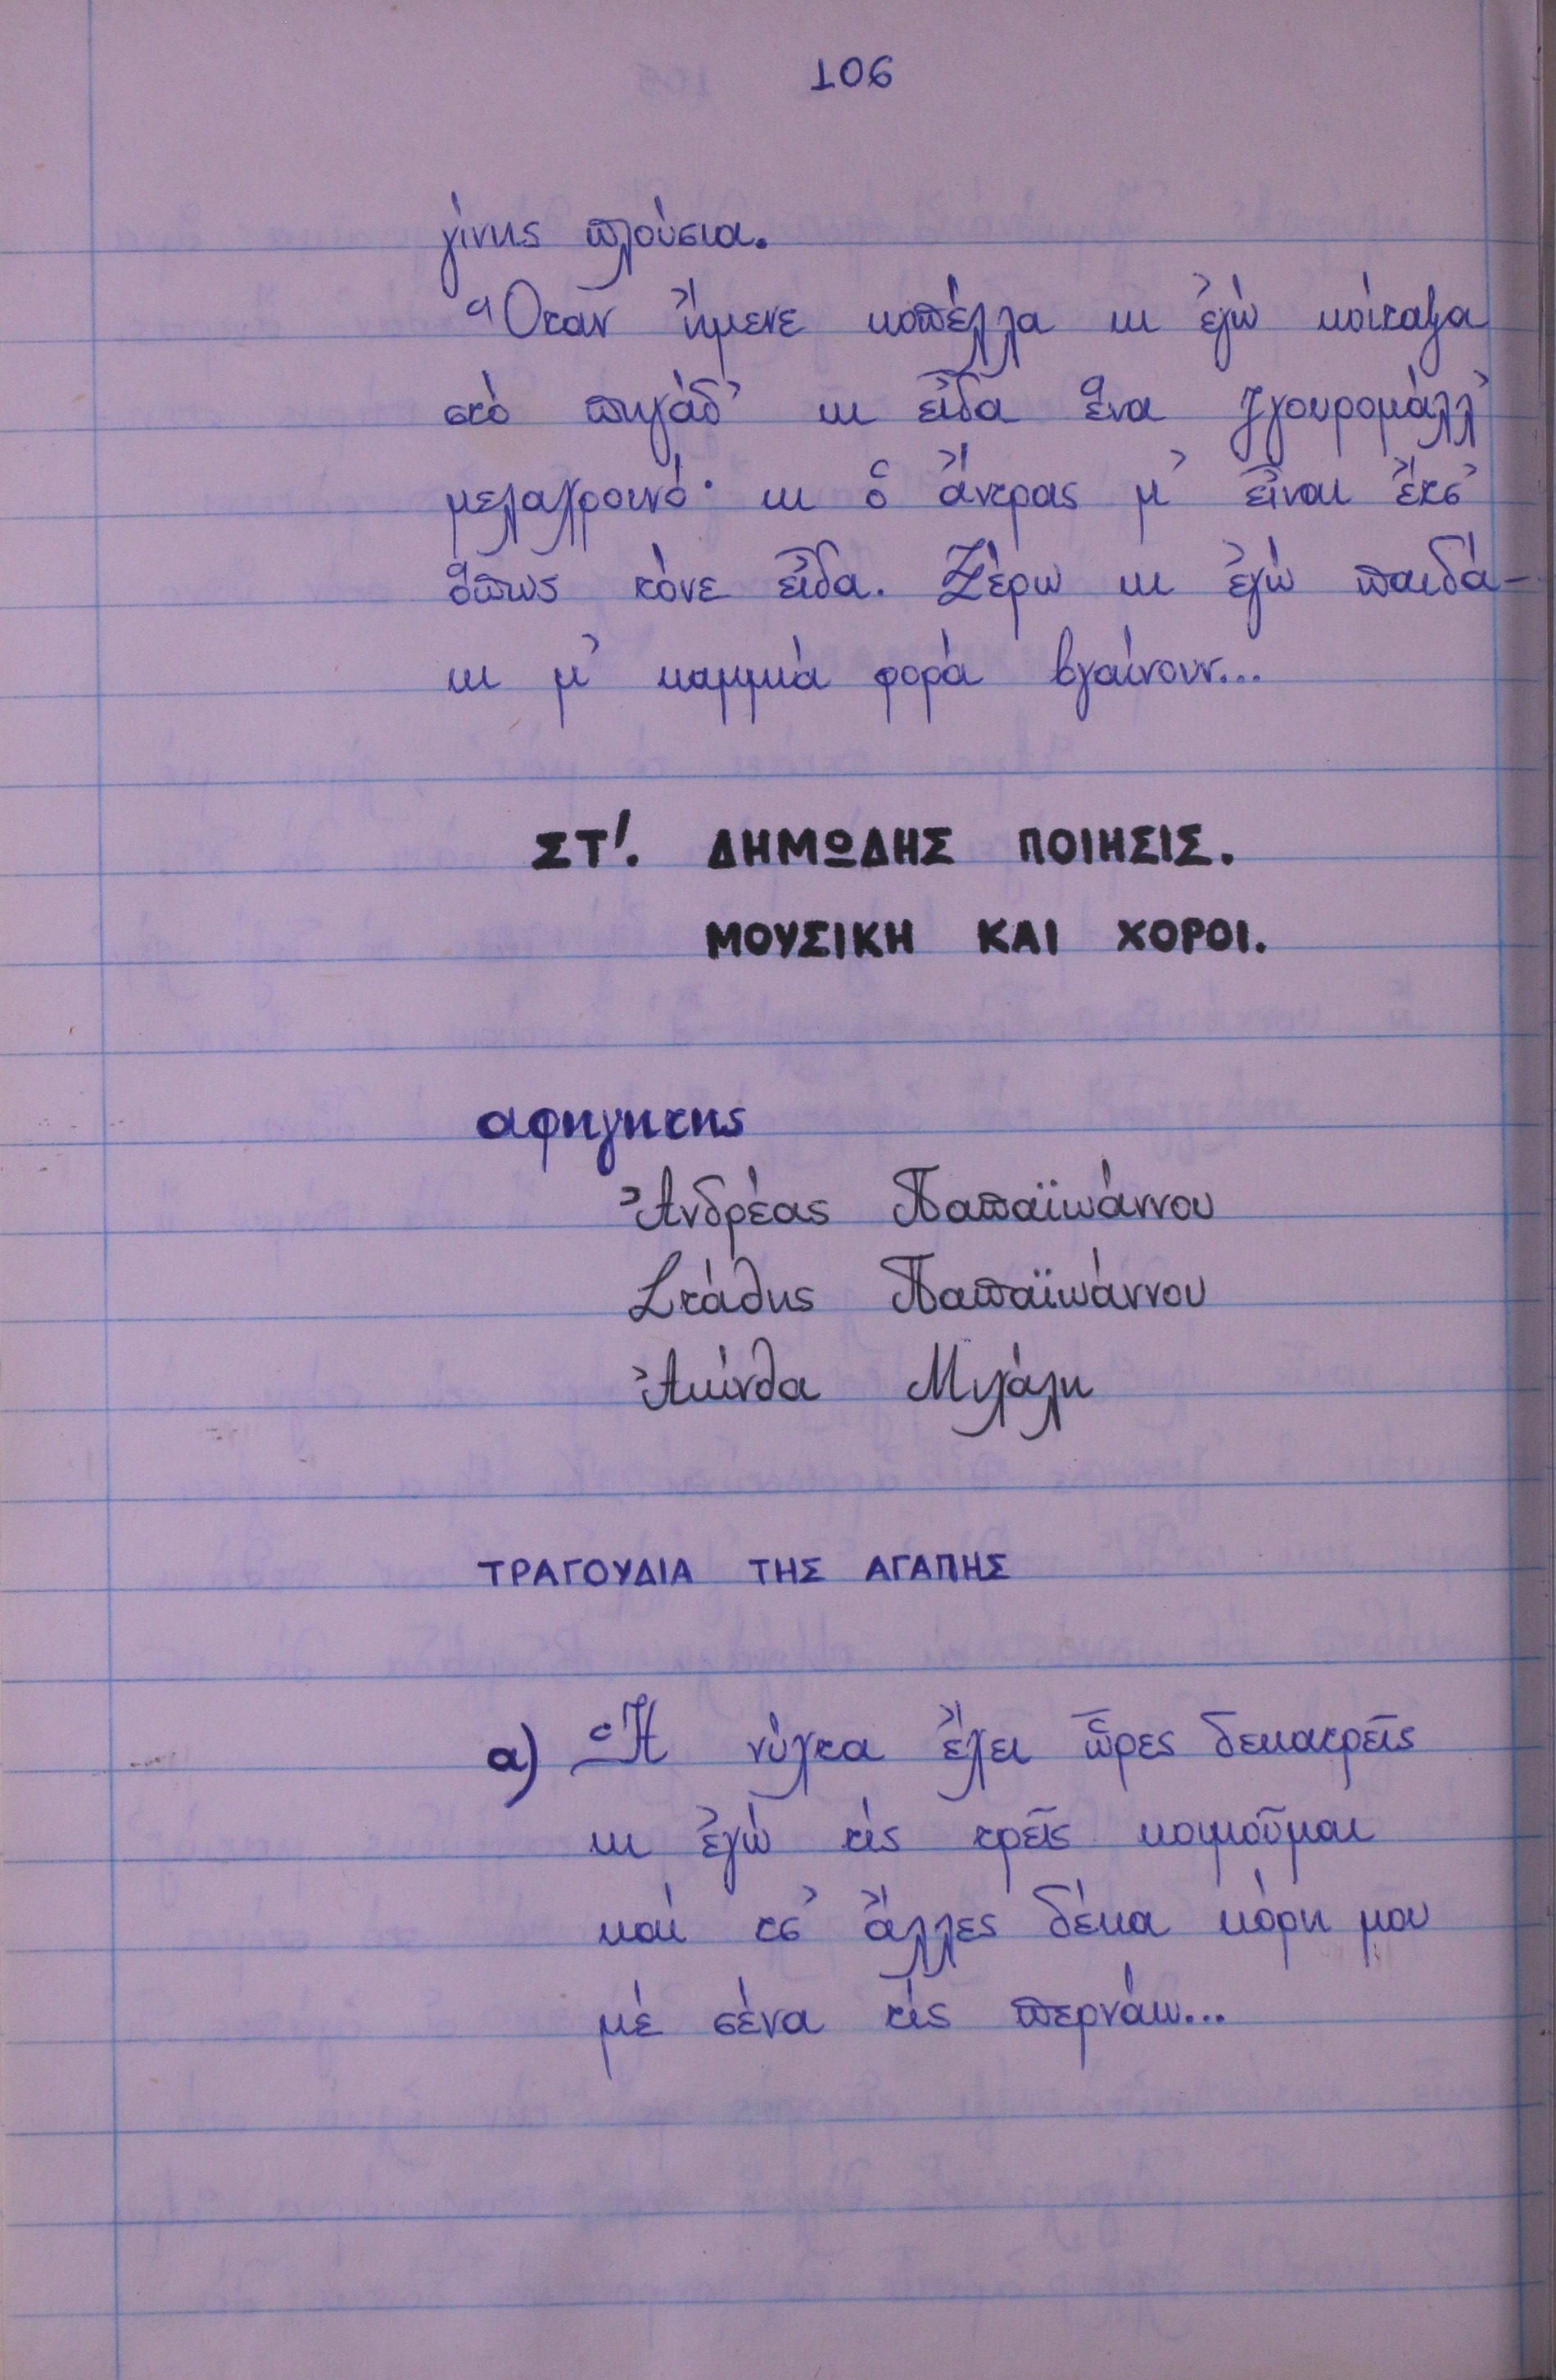 106
γίνης πλούσια.
Ὅταν ἤμενε κοπέλλα κι ἐγώ κοίταξα
στό πηγάδ' κι εἶδα ἕνα ζγουρομάλλ'
μελαχροινό· κι ὁ ἄντρας μ' εἶναι ἔτσ'
ὅπως τόνε εἶδα. Ξέρω κι ἐγώ παιδά-
κι μ' καμμιά φορά βγαίνουν...
ΣΤ'. ΔΗΜΩΔΗΣ ΠΟΙΗΣΙΣ.
ΜΟΥΣΙΚΗ ΚΑΙ ΧΟΡΟΙ.
αφηγητης
Ἀνδρέας Παπαϊωάννου
Στάθης Παπαϊωάννου
Ἀκίνθα Μιχάλη
ΤΡΑΓΟΥΔΙΑ ΤΗΣ ΑΓΑΠΗΣ
α) Ἡ νύχτα ἔχει ὧρες δεκατρεῖς
κι ἐγώ τίς τρεῖς κοιμοῦμαι
καί τσ' ἄλλες δέκα κόρη μου
μέ σένα τίς περνάω...